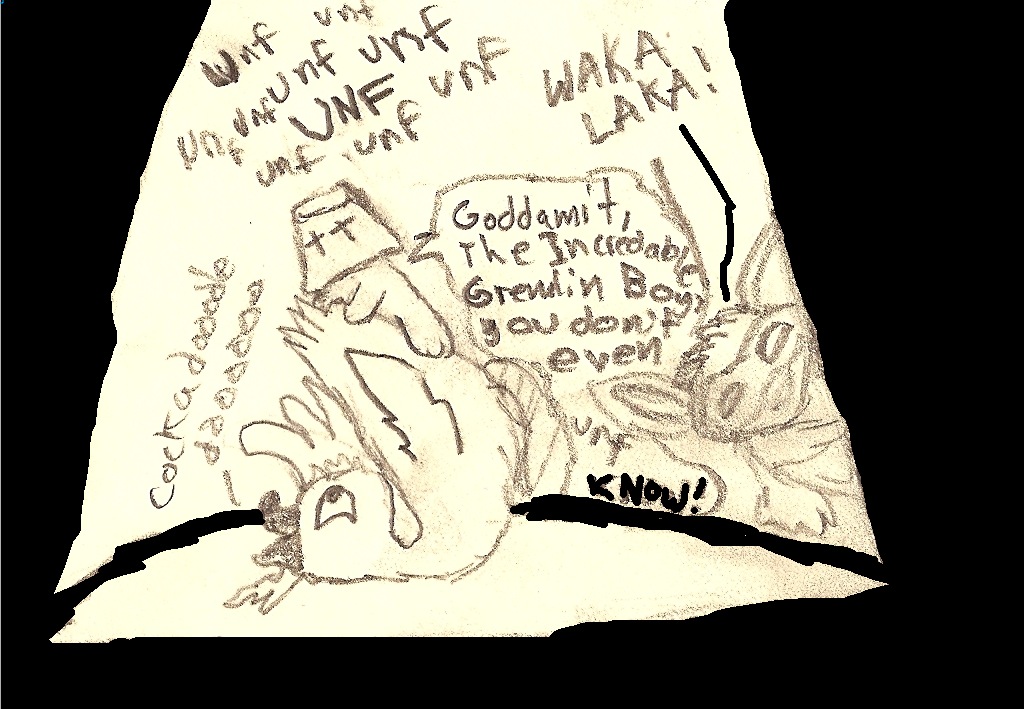 unf unf
unf unf
unf unf UNF unf
unf unf unf
WAKA
LAKA!
XX
Goddamit,
The Incredable
Gremlin Boy,
you don't
even
unf
KNOW!
Cockadoodle
daooooo